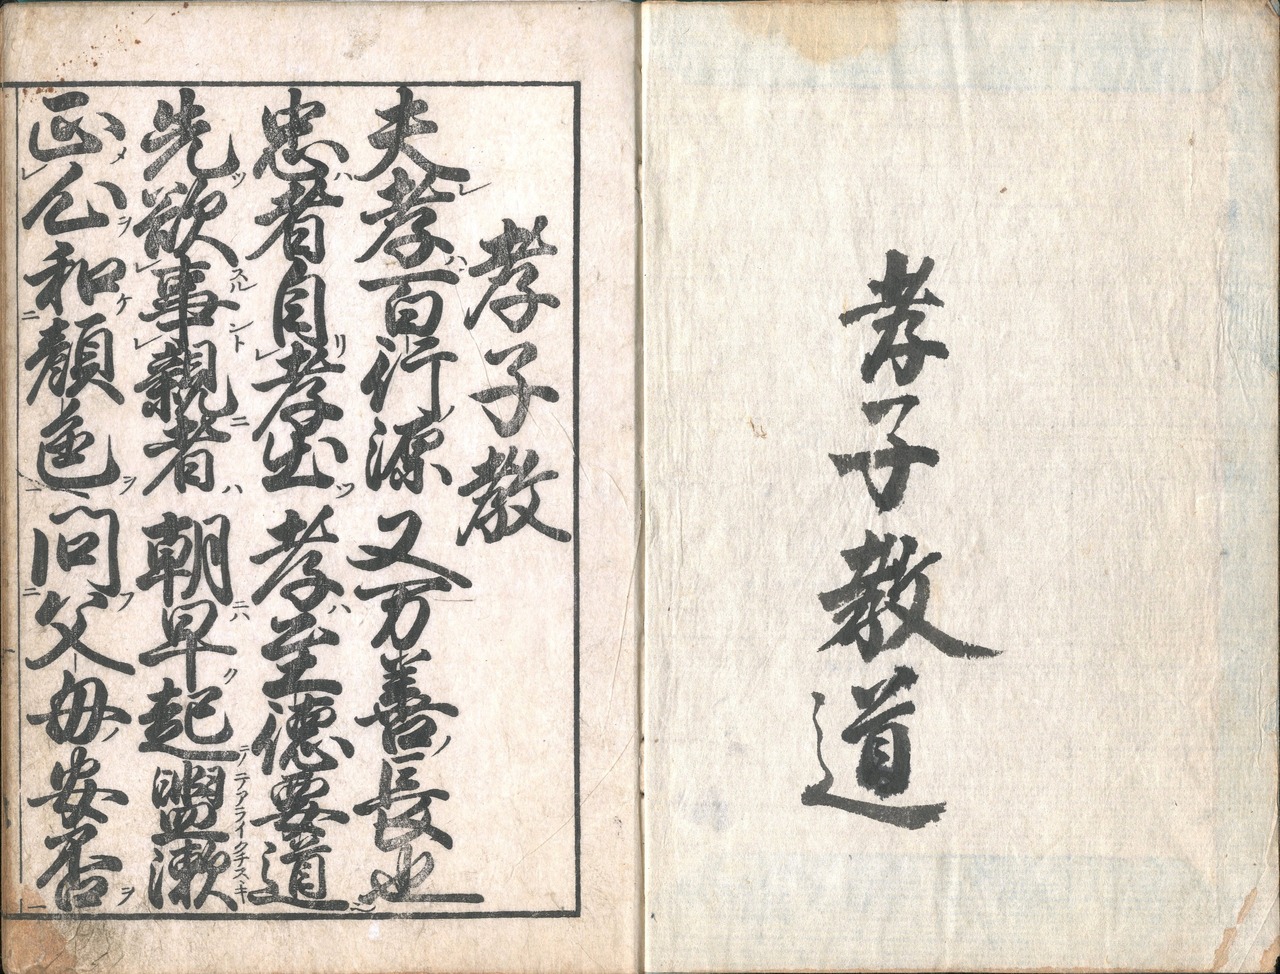 孝子教道
孝子教
夫孝百行源又万善長也
忠者自孝出孝至徳要道
先欲事親者朝早起盥漱
正心和顔色問父母安否